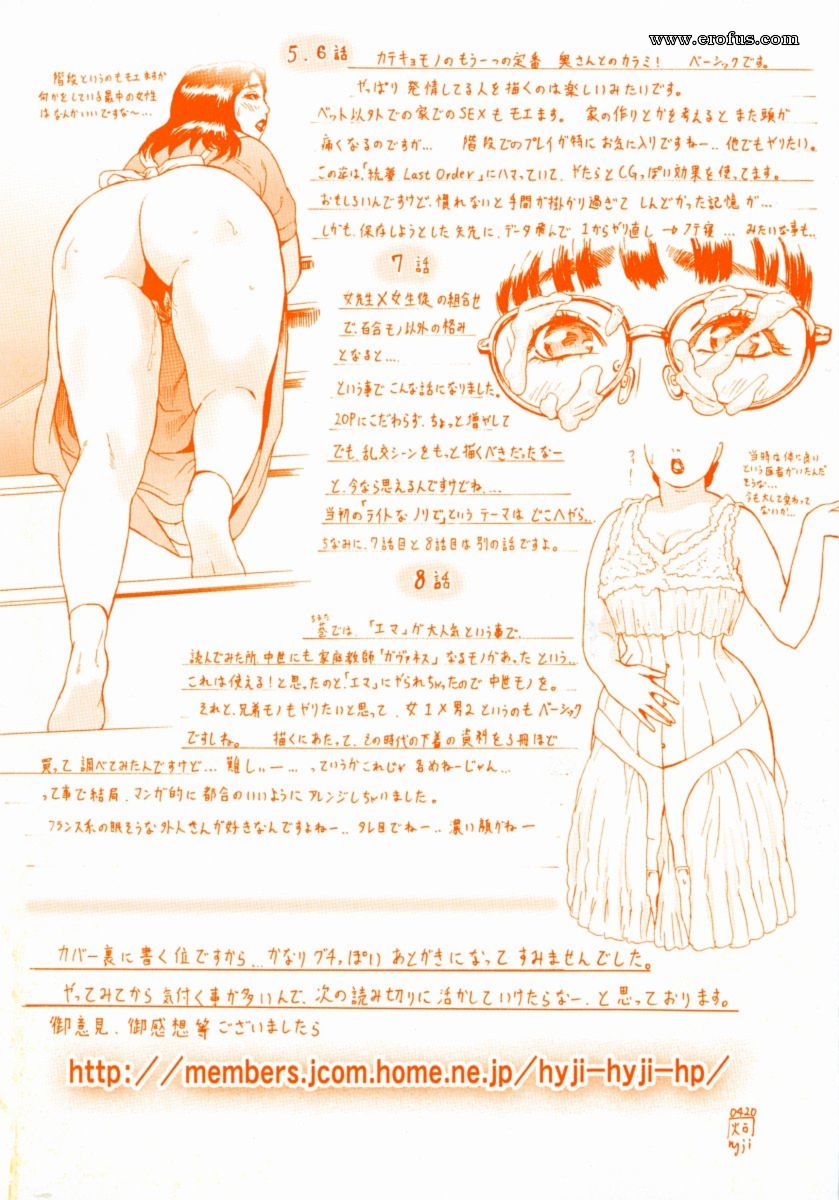 www.erofus.com
5.6話
カテキョモノのもう一つの定番 奥さんとのカラミ! ベーシックです。
階段というのもモエますが
何かをしている最中の女性
はなんかいいですな〜…
やっぱり 発情してる人を描くのは楽しいみたいです。
ベット以外での家でのSEXもモエます。 家の作りとかを考えると また頭が
痛くなるのですが… 階段でのプレイが特にお気に入りですねー.. 他でもヤリたい。
この 「銃夢 Last Order」にハマっていて、やたらとCGっぽい効果を使ってます。
おもしろいんですけど、慣れないと手間が掛かり過ぎて しんどかった記憶が…
しかも、保存しようとした矢先に、データ飛んで 1からヤリ直し → フテ寝 … みたいな事も..
7話
女先生×女生徒の組合せ
で、百合モノ以外の絡み
となると….
という事で こんな話になりました。
20Pにこだわらず、ちょっと増やして
でも、乱交シーンをもっと描くべきだったなー
と、今なら思えるんですけどね....
当初の「ライトなノリで」という テーマは どこへやら..
ちなみに、7話目と8話目は別の話ですよ。
当時は体に良い
という医者がいたんだ
そうな…
今も大して変わって
ないか!…
8話
ちまた
巷では、「エマ」が大人気という事で、
読んでみた所、中世にも家庭教師「ガヴァネス」なるモノがあったという..
これは使える!と思ったのと、「エマ」にヤられちゃったので中世モノを。
それと、兄弟モノもヤリたいと思って、女1×男2というのもベーシック
ですしね。 描くにあたって、その時代の下着の資料を3冊ほど
買って調べてみたんですけど… 難しぃー… っていうかこれじゃ 舐めねーじゃん…
って事で結局、マンガ的に都合のいいようにアレンジしちゃいました。
フランス系の眠そうな外人さんが好きなんですよねー.. タレ目でねー.. 濃い顔がねー
カバー裏に書く位ですから… かなりグチっぽい あとがきになって すみませんでした。
やってみてから気付く事が多いんで、次の読み切りに活かしていけたらなー、と思っております。
御意見、御感想等ございましたら
http://members.jcom.home.ne.jp/hyji-hyji-hp/
0420
hyji